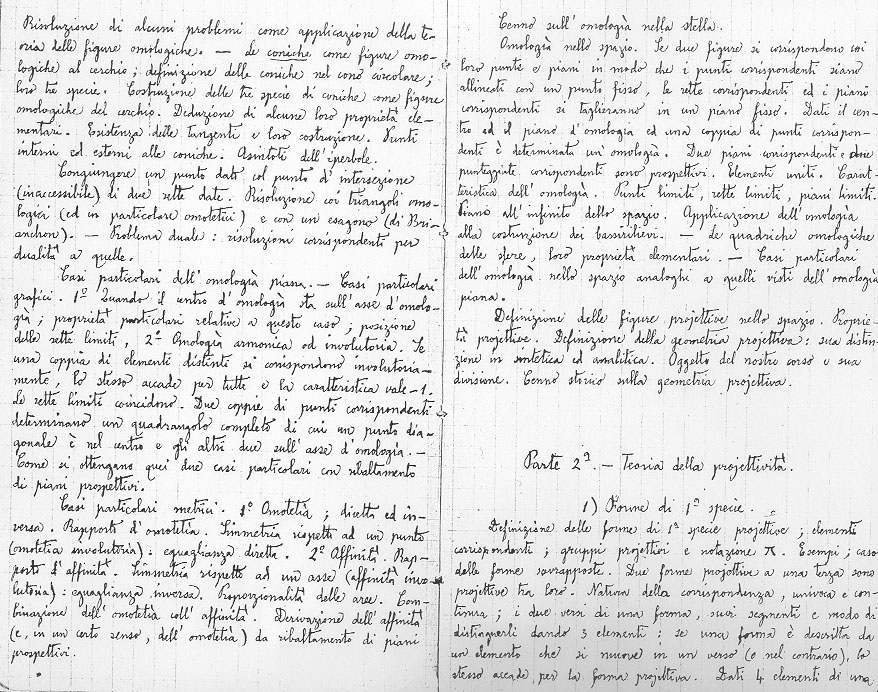 Risoluzione di alcuni problemi come applicazione della te-
oria delle figure omologiche. — Le coniche come figure omo-
logiche al cerchio; definizione delle coniche nel cono circolare;
loro tre specie. Costruzione delle tre specie di coniche come figure
omologiche del cerchio. Deduzione di alcune loro proprietà ele-
mentari. Esistenza delle tangenti e loro costruzione. Punti
interni ed esterni alle coniche. Asintoti dell'iperbole.
Congiungere un punto dato col punto d'intersezione
(inaccessibile) di due rette date. Risoluzione coi triangoli omo-
logici (ed in particolare omotetici) e con un esagono (di Bri-
anchon). — Problema duale: risoluzioni corrispondenti per
dualità a quelle.
Casi particolari dell'omologià piana. — Casi particolari
grafici. 1º Quando il centro d'omologià sta sull'asse d'omolo-
già; proprietà particolari relative a questo caso; posizione
delle rette limiti, 2º Omologià armonica od involutoria. Se
una coppia di elementi distinti si corrispondono involutoria-
mente, lo stesso accade per tutte e la caratteristica vale -1.
Le rette limiti coincidono. Due coppie di punti corrispondenti
determinano un quadrangolo completo di cui un punto dia-
gonale è nel centro e gli altri due sull'asse d'omologià. —
Come si ottengano quei due casi particolari con ribaltamento
di piani prospettivi.
Casi particolari metrici. 1º Omotetià; diretta ed in-
versa. Rapporto d'omotetià. Simmetria rispetto ad un punto
(omotetia involutoria): eguaglianza diretta. 2º Affinità. Rap-
porto d'affinità. Simmetria rispetto ad un asse (affinità invo-
lutoria): eguaglianza inversa. Proporzionalità delle aree. Com-
binazione dell'omotetià coll'affinità. Derivazione dell'affinità
(e, in un certo senso, dell'omotetià) da ribaltamento di piani
prospettivi.
Cenno sull'omologià nella stella.
Omologià nello spazio. Se due figure si corrispondono coi
loro punti e piani in modo che i punti corrispondenti siano
allineati con un punto fisso, le rette corrispondenti ed i piani
corrispondenti si taglieranno in un piano fisso. Dati il cen-
tro ed il piano d'omologia ed una coppia di punti corrispon-
denti è determinata un'omologià. Due piani corrispondenti e due
punteggiate corrispondenti sono prospettivi. Elementi uniti. Carat-
teristica dell'omologià. Punti limiti, rette limiti, piani limiti.
Piano all'infinito dello spazio. Applicazione dell'omologia
alla costruzione dei bassirilievi. — Le quadriche omologiche
delle sfere, loro proprietà elementari. — Casi particolari
dell'omologià nello spazio analoghi a quelli visti dell'omologià
piana.
Definizione delle figure projettive nello spazio. Proprie-
tà projettive. Definizione della geometria projettiva: sua distin-
zione in sintetica ed analitica. Oggetto del nostro corso e sua
divisione. Cenno storico sulla geometria projettiva.
Parte 2ª. — Teoria della projettività.
1) Forme di 1ª specie.
Definizione delle forme di 1ª specie projettive; elementi
corrispondenti; gruppi projettivi e notazione π. Esempi; caso
delle forme sovrapposte. Due forme projettive a una terza sono
projettive tra loro. Natura della corrispondenza, univoca e con-
tinua; i due versi di una forma, suoi segmenti e modo di
distinguerli dando 3 elementi: se una forma è descritta da
un elemento che si muove in un verso (o nel contrario), lo
stesso accade per la forma projettiva. Dati 4 elementi di una